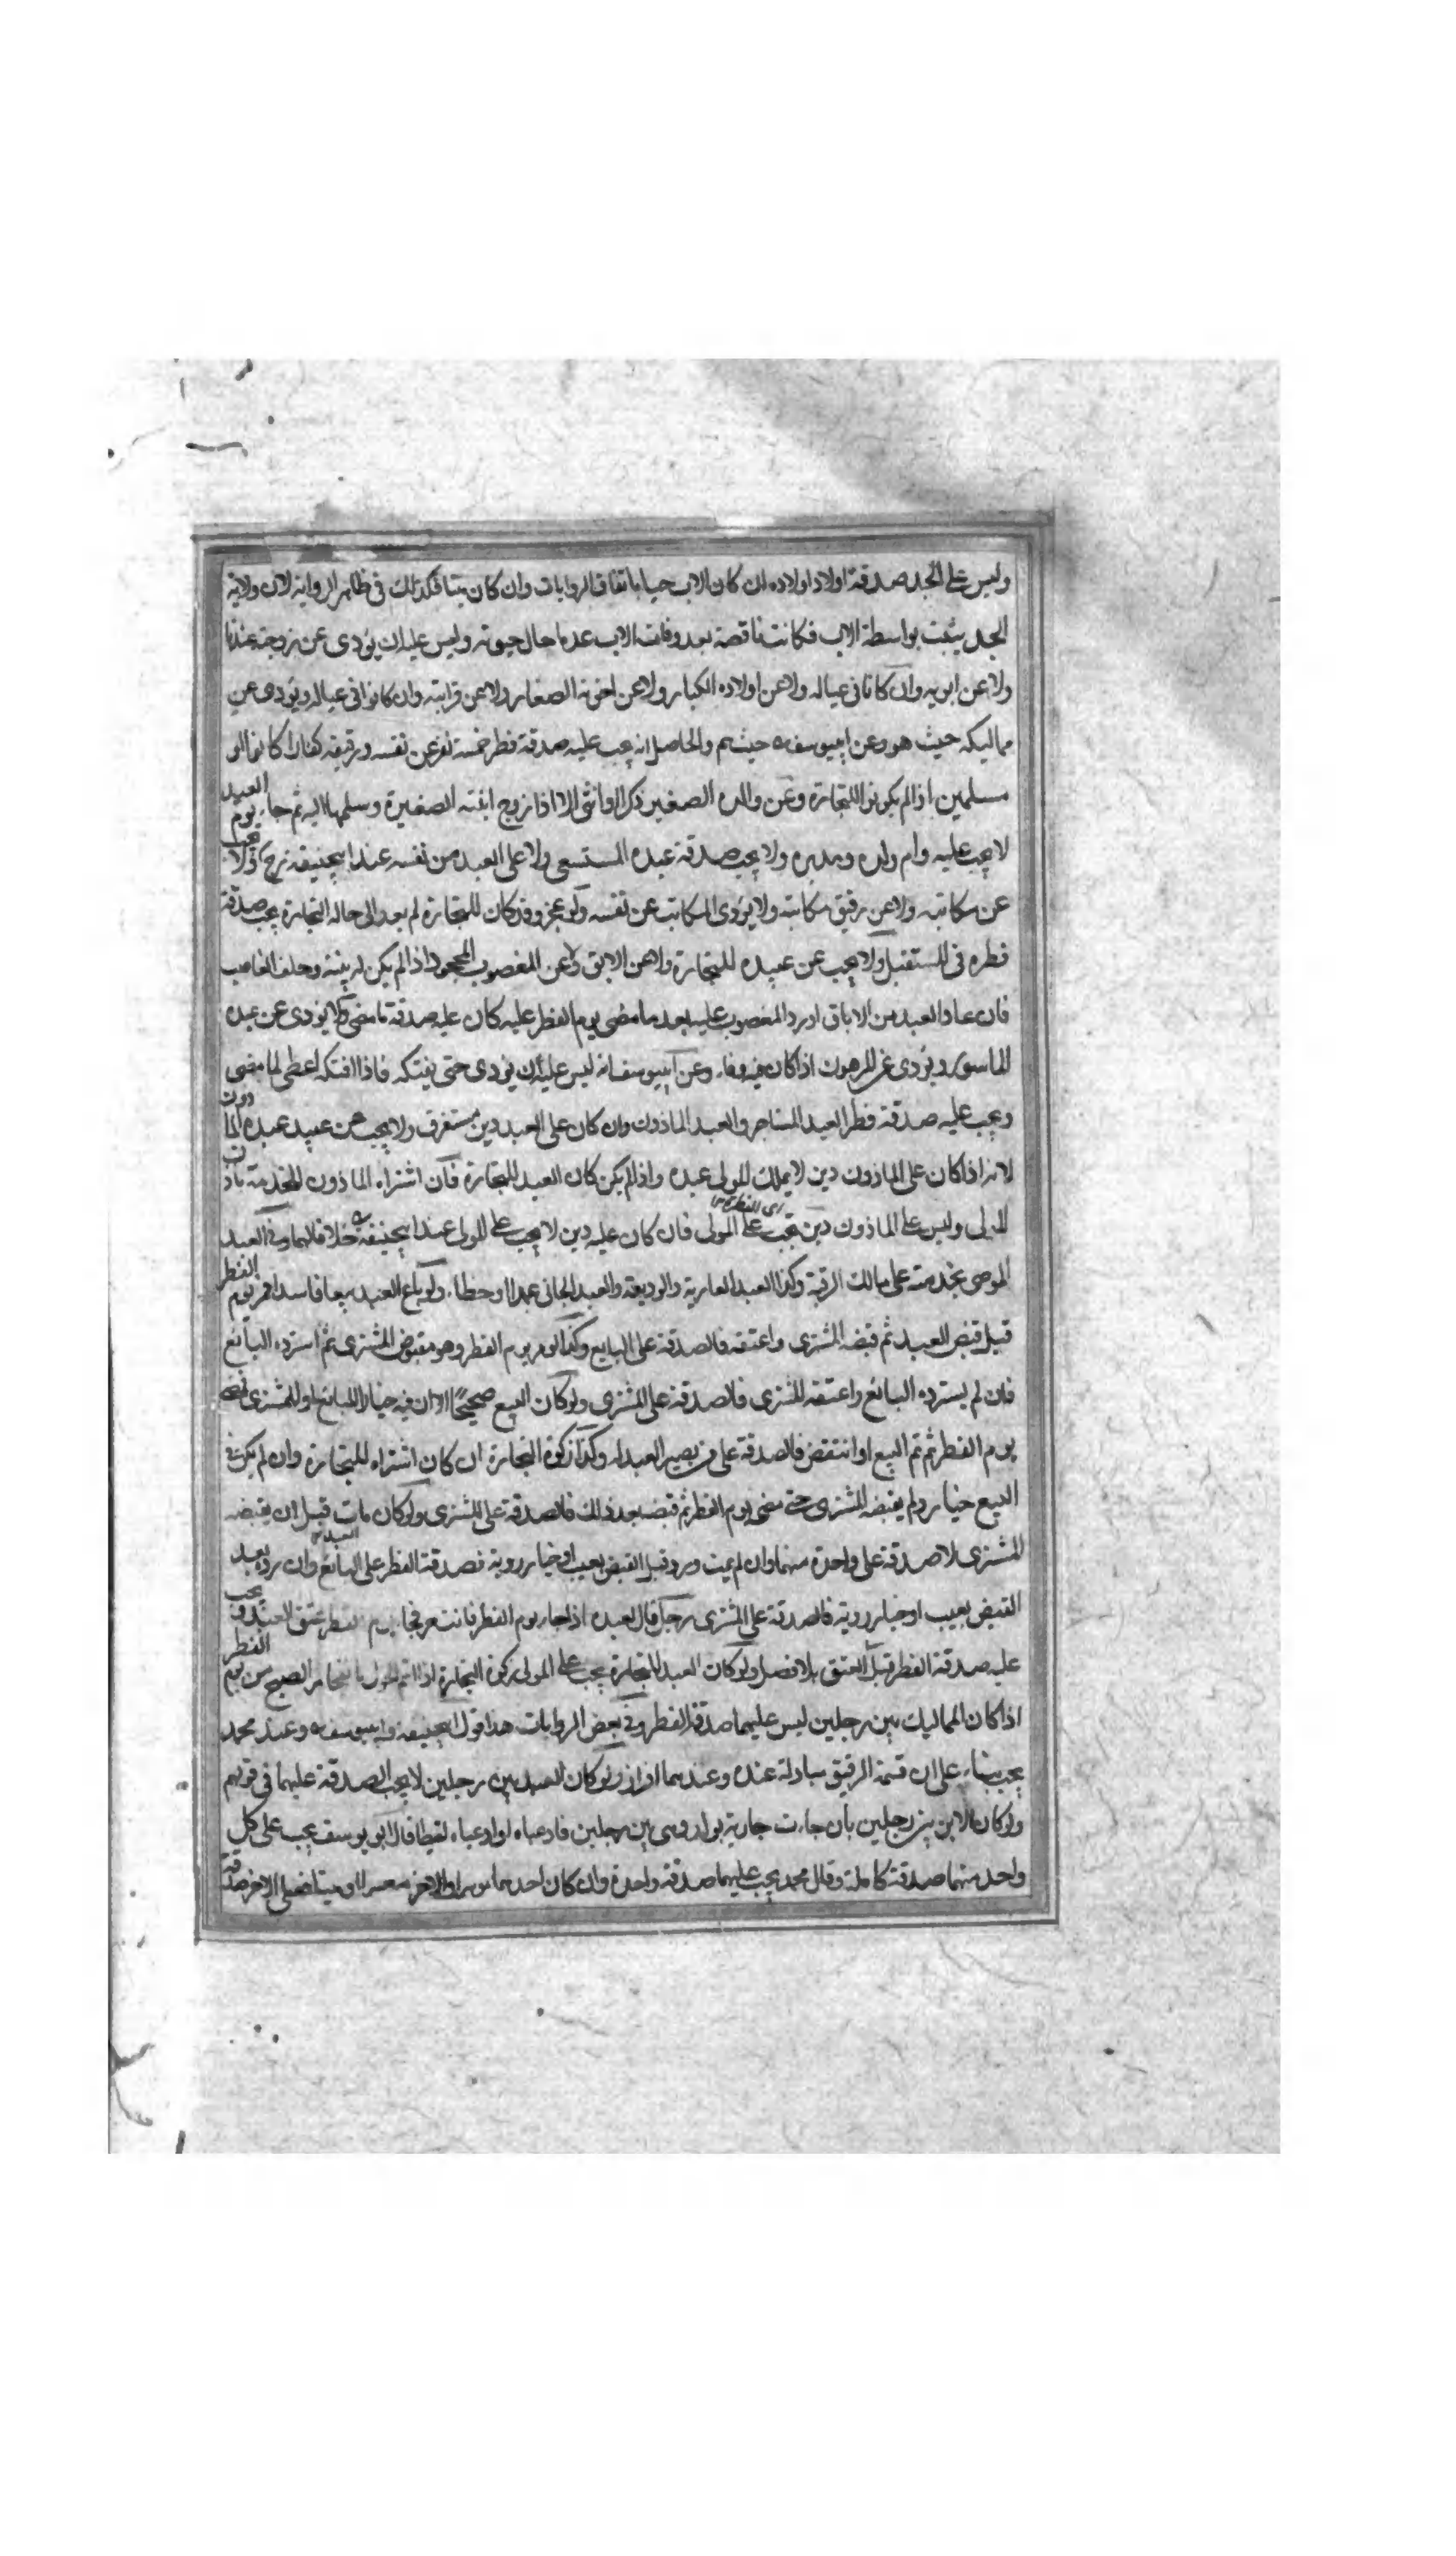 وليس على الجد صدقة اولاد اولاده ان كان الاب حيا باتفاق الروايات وان كان ميتا فكذلك فى ظاهر الرواية لان ولاية
الجد يثبت بواسطة الاب فكانت ناقصة بعد وفات الاب عدما حال حيوته وليس عليه ان يؤدى عن زوجته عندنا
ولا عن ابويه وان كانا فى عياله ولا عن اولاده الكبار ولا عن اخوته الصغار ولا عن قرابته وان كانوا فى عياله ويؤدى عن
مماليكه حيث هو وعن ابيوسف حيث هم والحاصل انه يجب عليه صدقة فطر خمسة نفر عن نفسه ورقيقه كفارا كانوا او
مسلمين اذا لم يكونوا للتجارة وعن والده الصغير ذكرا او انثى الا اذا زوج ابنته الصغيرة وسلمها اليه ثم جاء يوم العيد
لا يجب عليه وام ولده ومدبره ولا يجب صدقة عبده المستسعى ولا على العبد من نفسه عند ابيحنيفة ولا يجب
عن مكاتبه ولا عن رقيق مكاتبه ولا يؤدى المكاتب عن نفسه ولو عجز وقد كان للتجارة لم يعد الى حاله التجارة يجب صدقة
فطره فى المستقبل ولا يجب عن عبيده للتجارة ولا عن الابق ولا عن المغصوب المجحود اذا لم يكن له بينة وحلف الغاصب
فان عاد العبد من الاباق او رد المغصوب عليه بعد ما مضى يوم الفطر عليه كان عليه صدقة ما مضى ولا يؤدى عن عبده
الماسور ويؤدى عن المرهون اذا كان فيه وفاء وعن ابيوسف انه ليس عليه ان يؤدى حتى يفتكه فاذا افتكه اعطى لما مضى
ويجب عليه صدقة فطر العبد المستاجر والعبد الماذون وان كان على العبد دين مستغرق ولا يجب عن عبيد عبده الماذون
لانه اذا كان على الماذون دين لا يملك المولى عبده واذا لم يكن كان العبد للتجارة فان اشتراه الماذون للخدمة باذن
المولى وليس على الماذون دين يجب على المولى فان كان عليه دين لا يجب على المولى عند ابيحنيفة خلافا لهما وفى العبد
الموصى بخدمته على مالك الرقبة وكذا العبد العارية والوديعة والعبد الجانى عمدا او خطاء ولو باع العبد بيعا فاسدا فمر يوم الفطر
قبل قبض العبد ثم قبضه المشترى واعتقه فالصدقة على البايع وكذا لو مر يوم الفطر وهو مقبوض المشترى ثم استرده البائع
فان لم يسترده البائع واعتقه المشترى فالصدقة على المشترى ولو كان البيع صحيحا الا ان فيه خيارا للبائع او للمشترى
يوم الفطر ثم تم البيع او انتقض فالصدقة على من يصير العبد له وكذا زكوة التجارة ان كان اشتراه للتجارة وان لم يكن فى
البيع خيار ولم يقبضه المشترى حتى مضى يوم الفطر ثم قبضه بعد ذلك فالصدقة على المشترى ولو كان مات قبل ان يقبضه
المشترى لا صدقة على واحدة منهما وان لم يمت ورد قبل القبض بعيب او خيار روية فصدقة الفطر على البائع وان رد بعد
القبض بعيب او خيار روية فالصدقة على المشترى رجل قال لعبده اذا جاء يوم الفطر فانت حر فجاء يوم الفطر عتق العبد ويجب
عليه صدقة الفطر قبل العتق بلا فصل ولو كان العبد للتجارة يجب على المولى زكوة التجارة اذا تم الحول بانفجار الصبح من يوم الفطر
اذا كان المماليك بين رجلين ليس عليهما صدقة الفطر وفى بعض الروايات هذا قول ابيحنيفة وابيوسف وعند محمد
يجب بناء على ان قسمة الرقيق مبادلة عنده وعندهما افراز ولو كان العبد بين رجلين لا يجب الصدقة عليهما فى قولهم
ولو كان الابن بين رجلين بان جاءت جارية بولد وهى بين رجلين فادعياه او ادعياه لقيطا قال ابو يوسف يجب على كل
واحد منهما صدقة كاملة وقال محمد يجب عليهما صدقة واحدة وان كان احدهما موسرا والاخر معسرا او ميتا فعلى الاخر صدقة